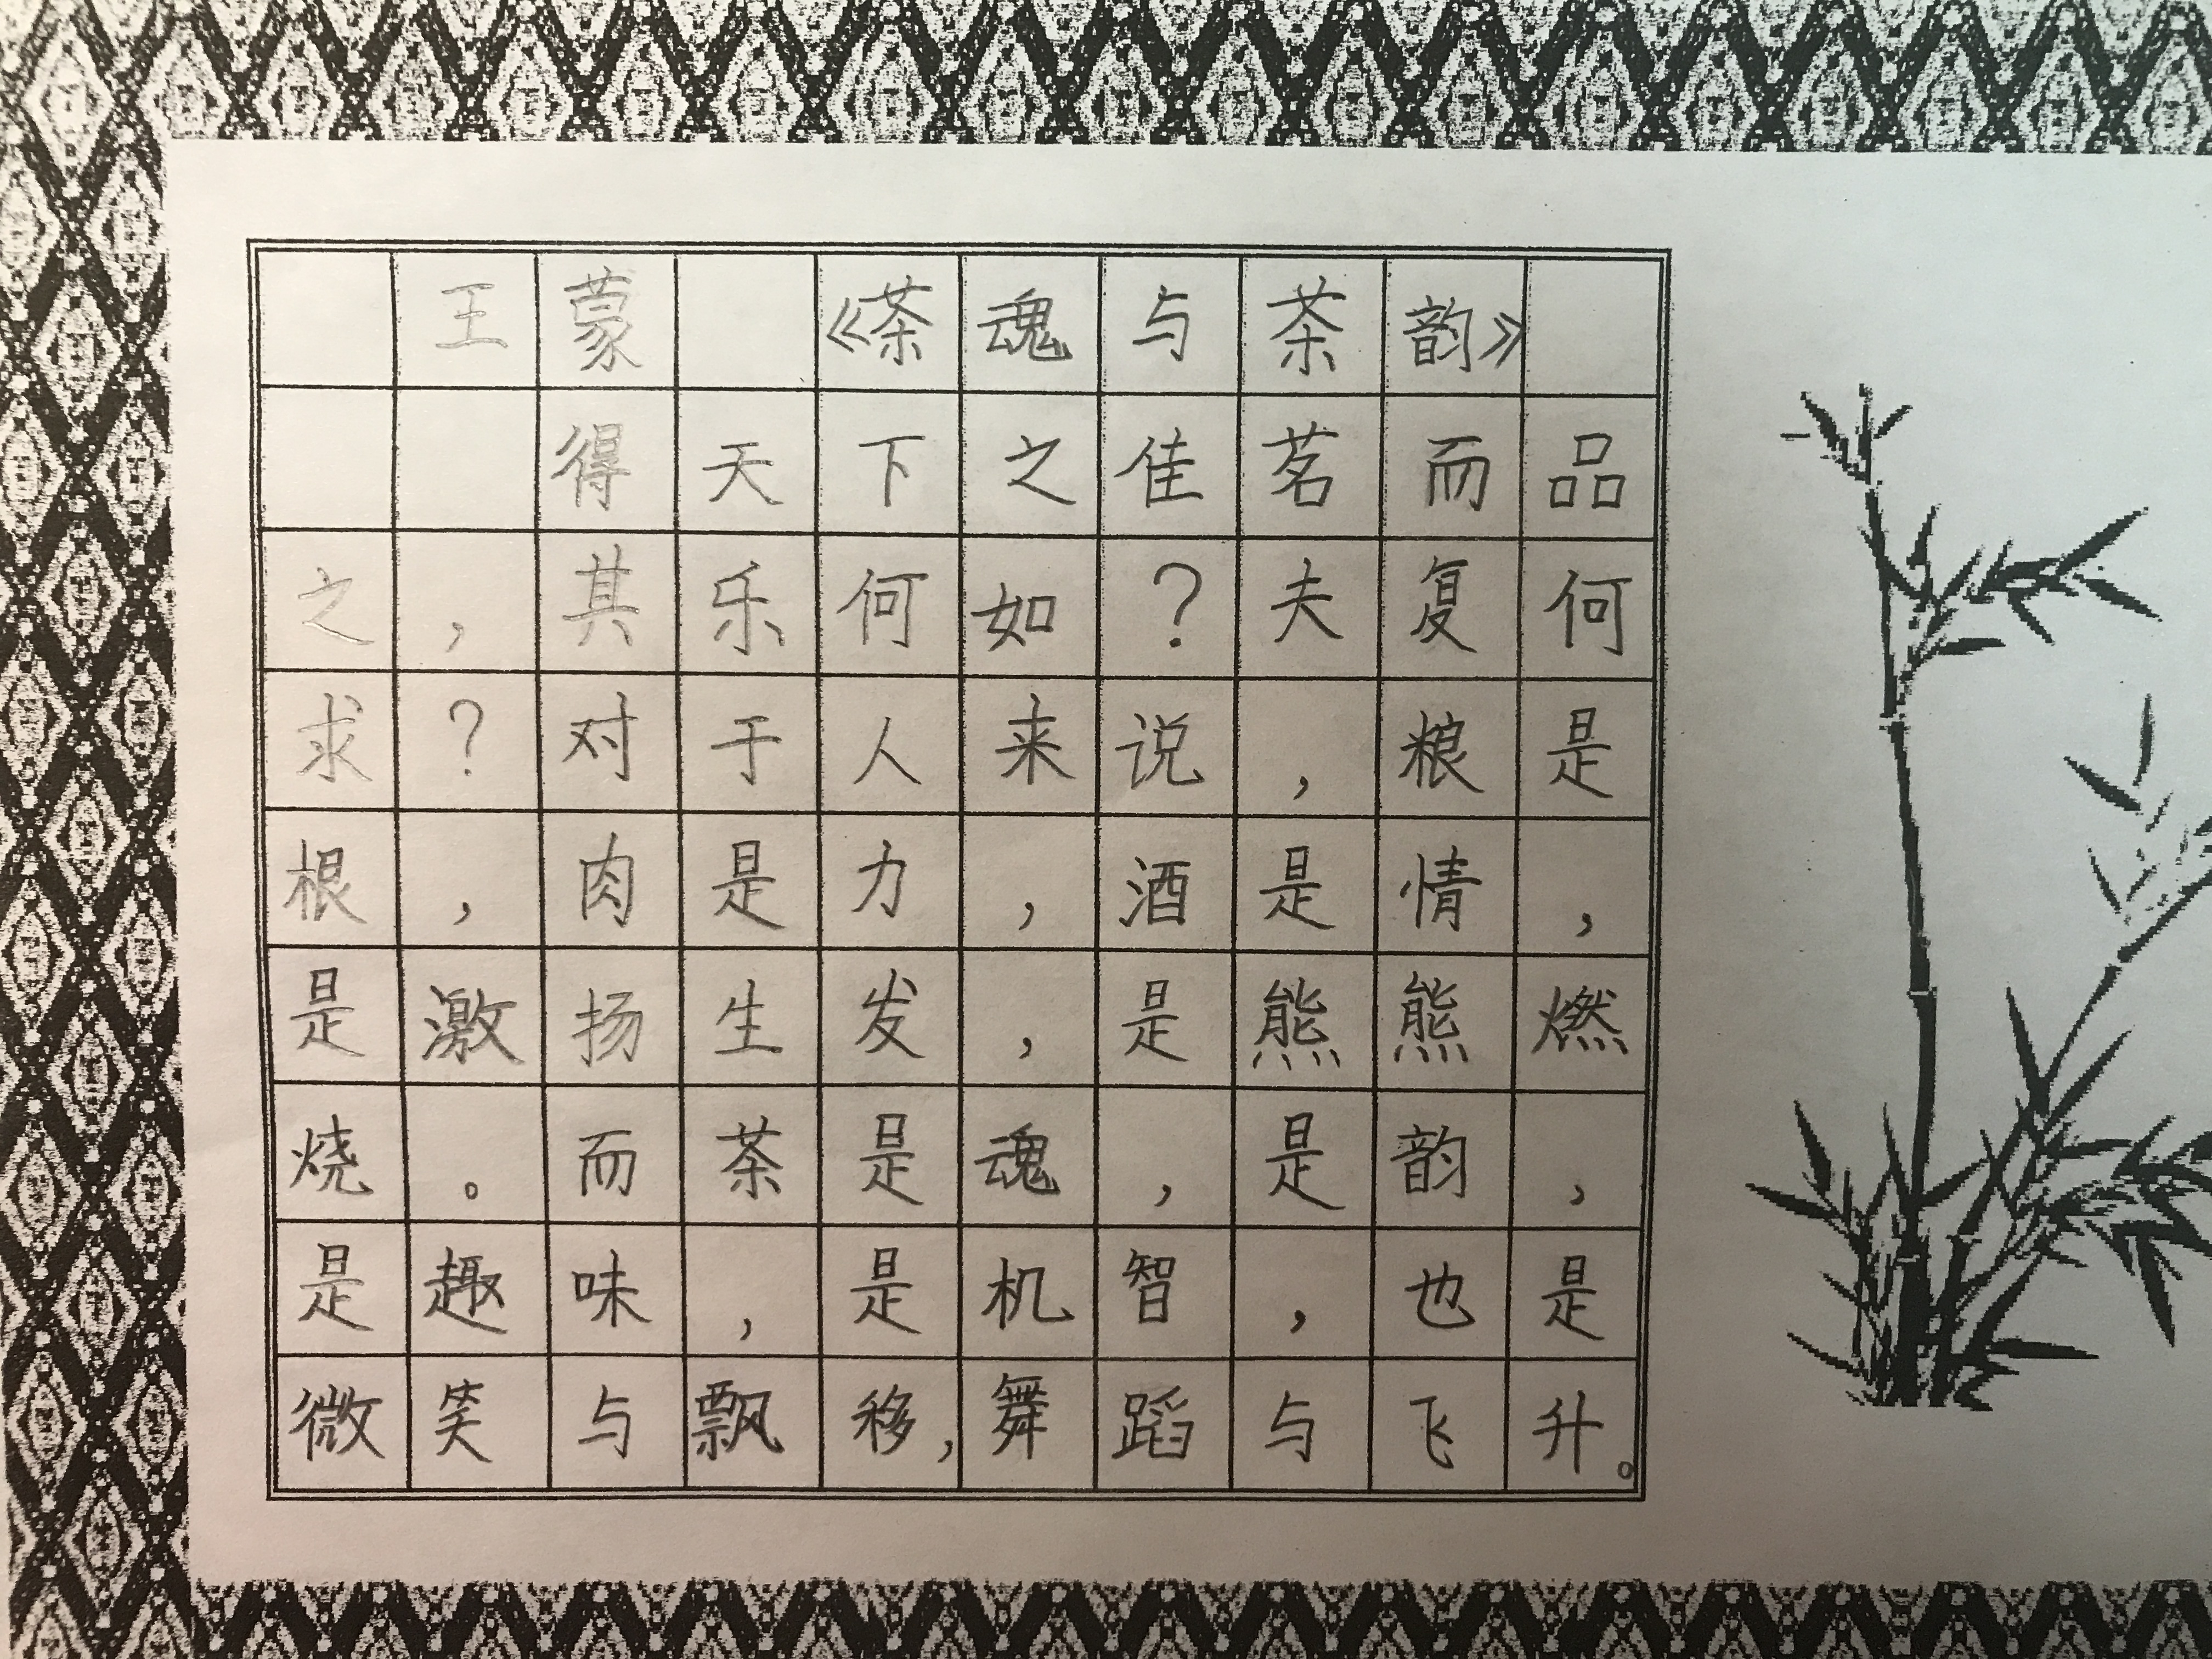 王蒙 《茶魂与茶韵》
得天下之佳茗而品
之，其乐何如？夫复何
求？对于人来说，粮是
根，肉是力，酒是情，
是激扬生发，是熊熊燃
烧。而茶是魂，是韵，
是趣味，是机智，也是
微笑与飘移，舞蹈与飞升。